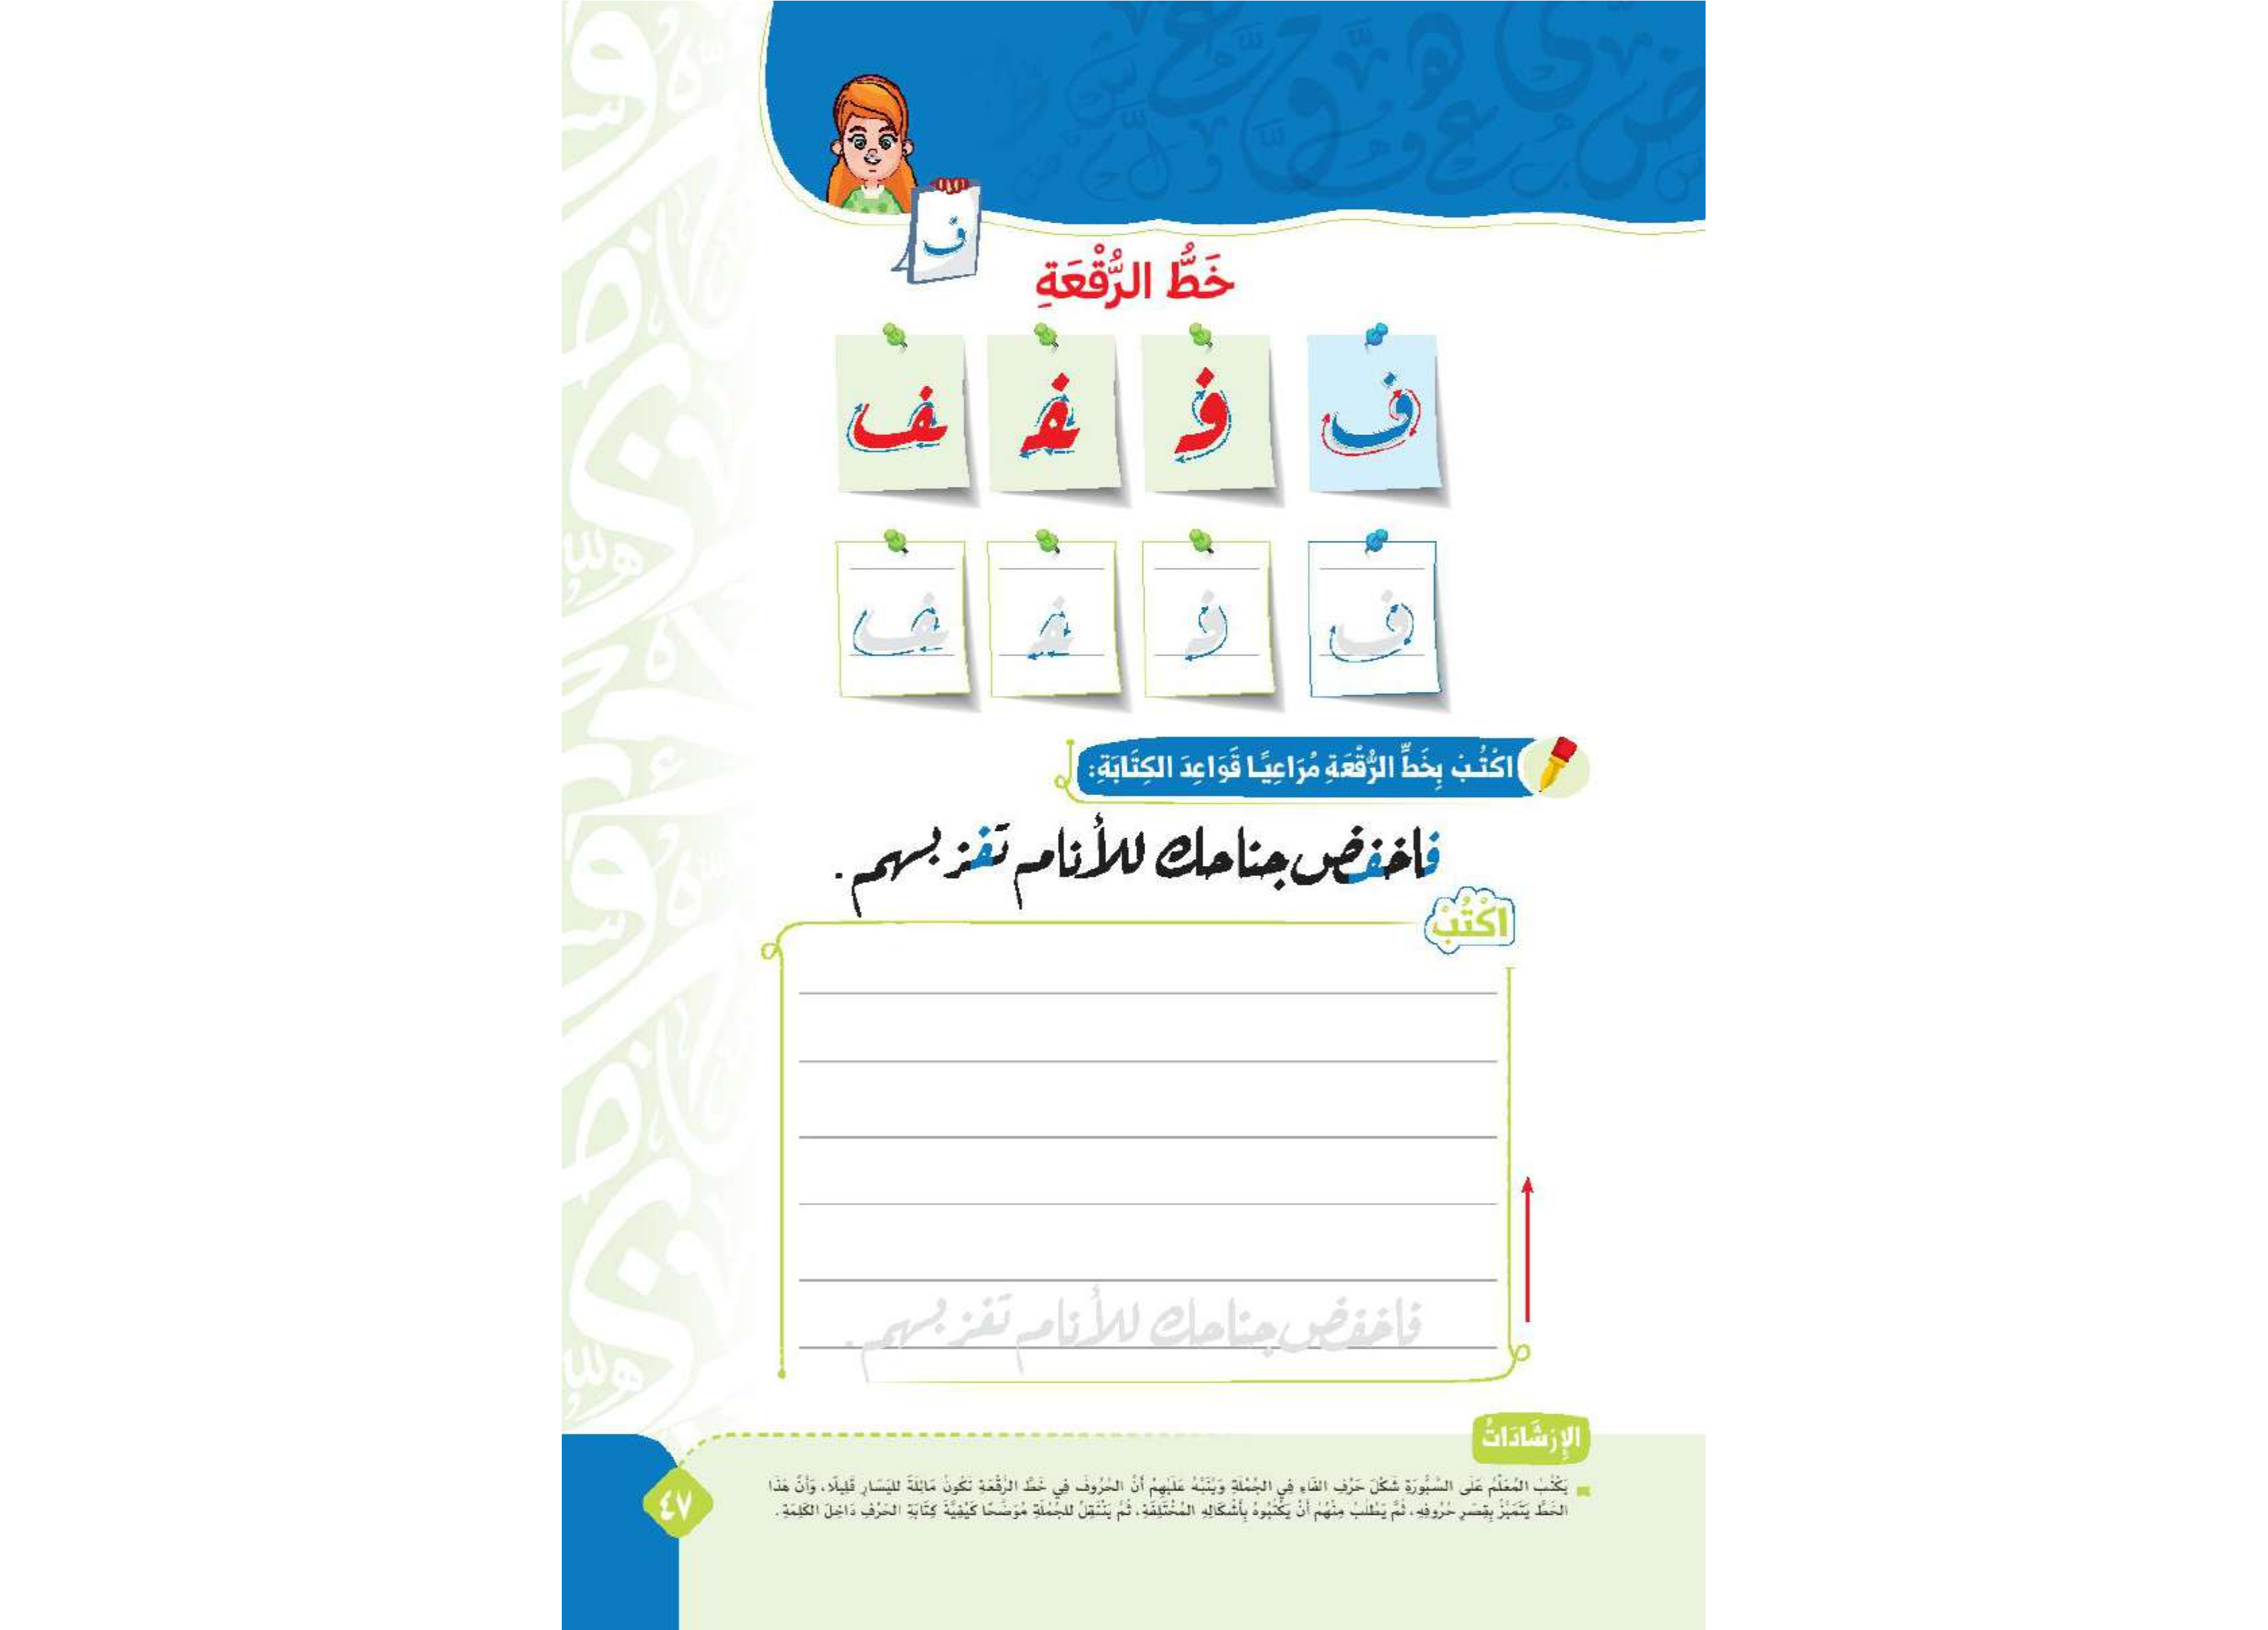 ف
خَطُّ الرُّقْعَةِ
ف فـ ـفـ ـف
ف فـ ـفـ ـف
اكْتُبْ بِخَطِّ الرُّقْعَةِ مُرَاعِيًا قَوَاعِدَ الكِتَابَةِ:
فاخفض جناحك للأنام تفز بهم.
اكْتُبْ
فاخفض جناحك للأنام تفز بهم.
الإِرْشَادَاتُ
يَكْتُبُ المُعَلِّمُ عَلَى السَّبُّورَةِ شَكْلَ حَرْفِ الفَاءِ فِي الجُمْلَةِ وَيُنَبِّهُ عَلَيْهِمْ أَنَّ الحُرُوفَ فِي خَطِّ الرُّقْعَةِ تَكُونُ مَائِلَةً لليَسَارِ قَلِيلًا، وَأَنَّ هَذَا
الخَطَّ يَتَمَيَّزُ بِقِصَرِ حُرُوفِهِ، ثُمَّ يَطْلُبُ مِنْهُمْ أَنْ يَكْتُبُوهُ بِأَشْكَالِهِ المُخْتَلِفَةِ، ثُمَّ يَنْتَقِلُ للجُمْلَةِ مُوَضِّحًا كَيْفِيَّةَ كِتَابَةِ الحَرْفِ دَاخِلَ الكَلِمَةِ.
٤٧